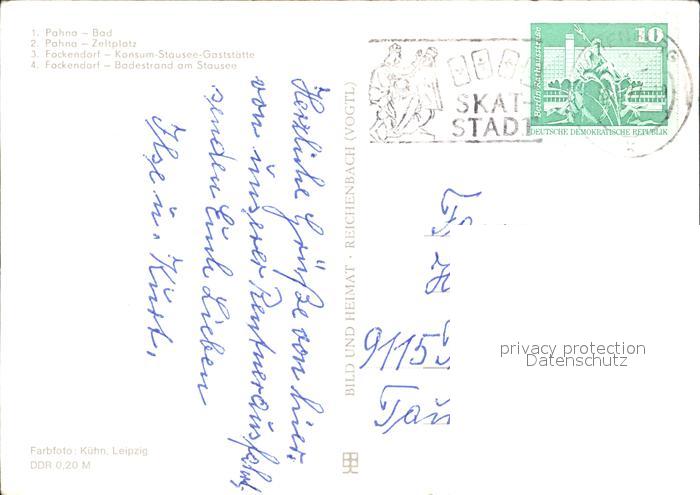 1. Pahna – Bad
2. Pahna – Zeltplatz
3. Fockendorf – Konsum-Stausee-Gaststätte
4. Fockendorf – Badestrand am Stausee
Herzliche Grüße von hier.
von unserer Rentnerausfahrt
senden Euch Lieben
Ilse u. Kurt.
Farbfoto: Kühn, Leipzig
DDR 0,20 M
BILD UND HEIMAT · REICHENBACH (VOGTL)
SKAT-
STADT
10
Berlin, Rathausstraße
DEUTSCHE DEMOKRATISCHE REPUBLIK
9115
privacy protection
Datenschutz